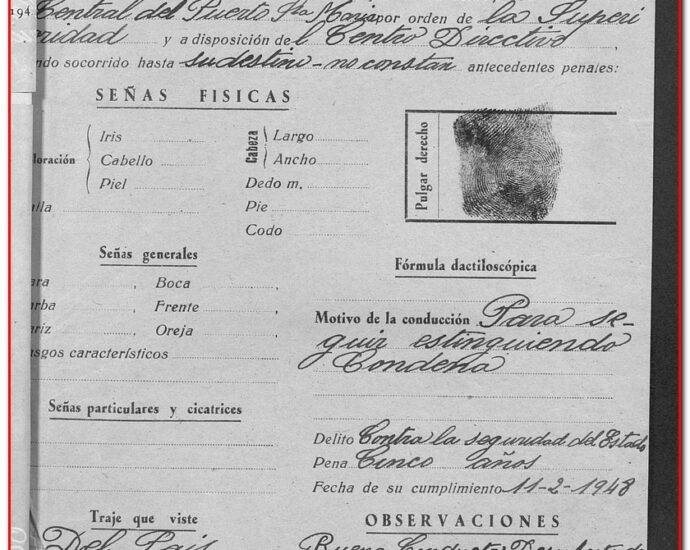 194
Central del Puerto Sta María por orden de la Superi
oridad y a disposición del Centro Directivo,
ndo socorrido hasta su destino - no constan antecedentes penales:
SEÑAS FISICAS
loración
Iris
Cabello
Piel
alla
Cabeza
Largo
Ancho
Dedo m.
Pie
Codo
Pulgar derecho
Señas generales
ara , Boca
arba , Frente ,
ariz , Oreja
asgos característicos
Señas particulares y cicatrices
Fórmula dactiloscópica
Motivo de la conducción Para se-
guir estinguiendo
Condena
Delito Contra la seguridad del Estado
Pena Cinco años
Fecha de su cumplimiento 11-2-1948
Traje que viste
Del Pais
OBSERVACIONES
Buena Conducta